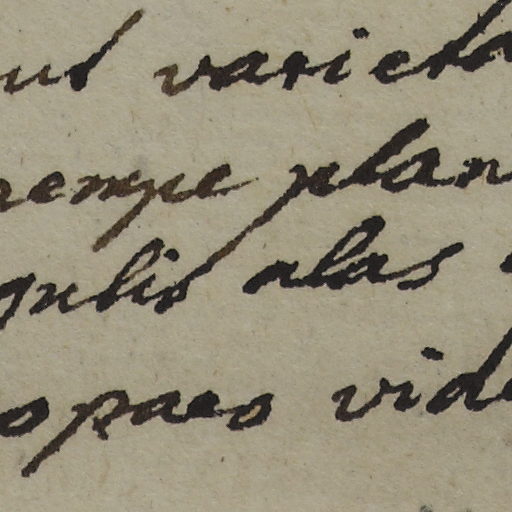 ut varieta
nempe plan
gulis alas
opaeo vide